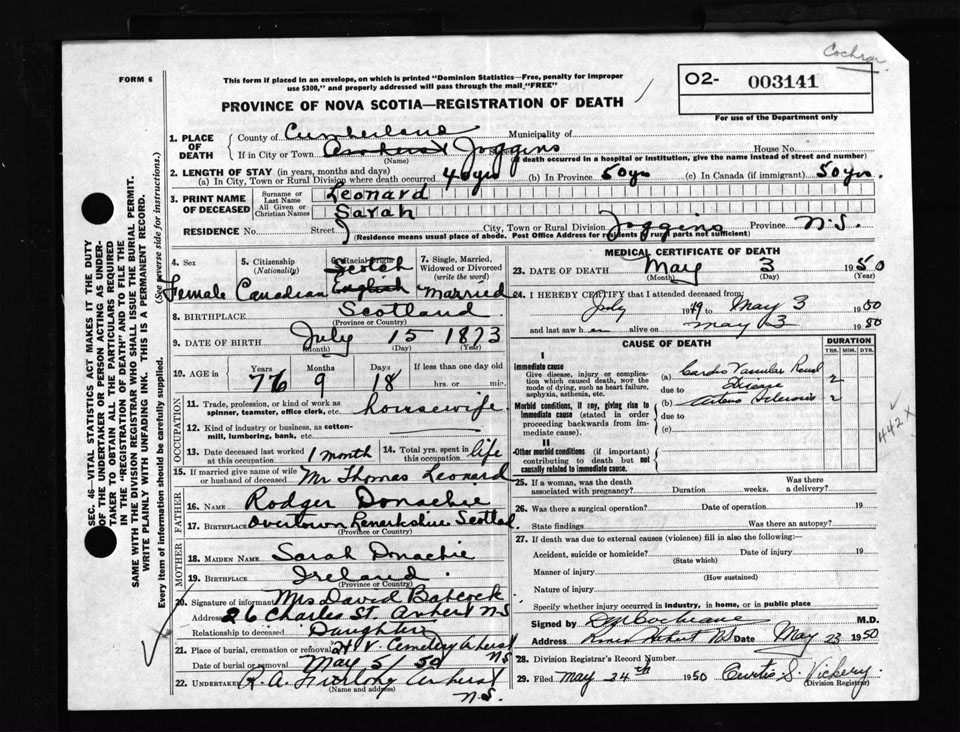 Cochran
FORM 6
This form if placed in an envelope, on which is printed "Dominion Statistics—Free, penalty for improper
use $300," and properly addressed will pass through the mail "FREE"
O2- 003141
For use of the Department only
PROVINCE OF NOVA SCOTIA—REGISTRATION OF DEATH
1. PLACE OF DEATH
County of Cumberland Municipality of
If in City or Town Amherst Joggins Street House No.
(Name) (If death occurred in a hospital or institution, give the name instead of street and number)
2. LENGTH OF STAY (in years, months and days)
(a) In City, Town or Rural Division where death occurred 40 yrs (b) In Province 50 yrs (c) In Canada (if immigrant) 50 yrs.
3. PRINT NAME OF DECEASED
Surname or Last Name Leonard
All Given or Christian Names Sarah
RESIDENCE No. Street City, Town or Rural Division Joggins Province N.S.
(Residence means usual place of abode. Post Office Address for residents of rural parts not sufficient)
4. Sex 5. Citizenship (Nationality) 6. Racial Origin 7. Single, Married, Widowed or Divorced (write the word)
Scotch
Female Canadian English Married
8. BIRTHPLACE Scotland
(Province or Country)
9. DATE OF BIRTH July 15 1873
(Month) (Day) (Year)
10. AGE in Years Months Days If less than one day old
76 9 18 hrs. or min.
OCCUPATION
11. Trade, profession, or kind of work as spinner, teamster, office clerk, etc. housewife
12. Kind of industry or business, as cotton-mill, lumbering, bank, etc.
13. Date deceased last worked at this occupation 1 month 14. Total yrs. spent in this occupation life
15. If married give name of wife or husband of deceased Mr Thomas Leonard
FATHER
16. NAME Rodger Donachie
17. BIRTHPLACE Overtown Lenerkshire Scotlad
(Province or Country)
MOTHER
18. MAIDEN NAME Sarah Donachie
19. BIRTHPLACE Ireland
(Province or Country)
20. Signature of informant Mrs David Babcock
Address 26 Charles St. Amherst N-S
Relationship to deceased Daughter
21. Place of burial, cremation or removal H.V. Cemetery Amherst NS
Date of burial or removal May 5/50
22. Undertaker R.A. Furlong Amherst N-S.
(Name and address)
MEDICAL CERTIFICATE OF DEATH
23. DATE OF DEATH May 3 1950
(Month) (Day) (Year)
24. I HEREBY CERTIFY that I attended deceased from:
July 1949 to May 3 1950
and last saw h er alive on May 3 1950
CAUSE OF DEATH
DURATION
YRS. MOS. DYS.
I
Immediate cause
Give disease, injury or complication which caused death, NOT the mode of dying, such as heart failure, asphyxia, asthenia, etc.
(a) Cardio Vascular Renal 2
due to Disease
Morbid conditions, if any, giving rise to immediate cause (stated in order proceeding backwards from immediate cause).
(b) Arterio Sclerosis 2
due to
(c)
442 X
II
Other morbid conditions (if important) contributing to death but not causally related to immediate cause.
25. If a woman, was the death associated with pregnancy? Duration weeks. Was there a delivery?
26. Was there a surgical operation? Date of operation 19
State findings Was there an autopsy?
27. If death was due to external causes (violence) fill in also the following:—
Accident, suicide or homicide? Date of injury 19
(State which)
Manner of injury
(How sustained)
Nature of injury
Specify whether injury occurred in industry, in home, or in public place
Signed by Cochrane M.D.
Address River Hebert NS Date May 23 1950
28. Division Registrar's Record Number
29. Filed May 24th 1950 Curtis S. Vickery
(Division Registrar)
SEC. 46—VITAL STATISTICS ACT MAKES IT THE DUTY
OF THE UNDERTAKER OR PERSON ACTING AS UNDERTAKER TO OBTAIN ALL THE PARTICULARS REQUIRED
IN THE "REGISTRATION OF DEATH" AND TO FILE THE
SAME WITH THE DIVISION REGISTRAR WHO SHALL ISSUE THE BURIAL PERMIT.
WRITE PLAINLY WITH UNFADING INK. THIS IS A PERMANENT RECORD.
Every item of information should be carefully supplied. (See reverse side for instructions.)